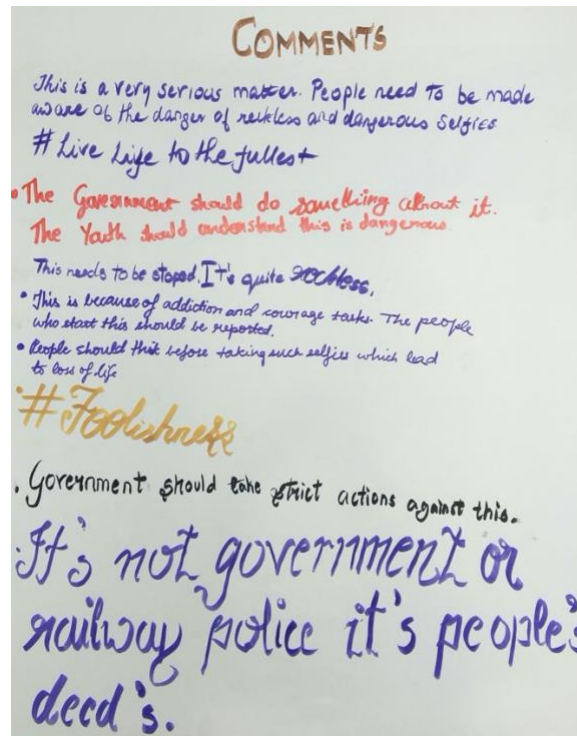 COMMENTS
This is a very serious matter. People need to be made
aware of the danger of reckless and dangerous selfies
# Live Life to the fullest
• The Government should do something about it.
The Youth should understand this is dangerous
This needs to be stoped. It's quite reckless.
• This is because of addiction and courage tasks. The people
who start this should be reported.
• People should think before taking such selfies which lead
to loss of life
• #Foolishness
. Government should take strict actions against this.
. It's not government or
railway police it's people's
deed's.